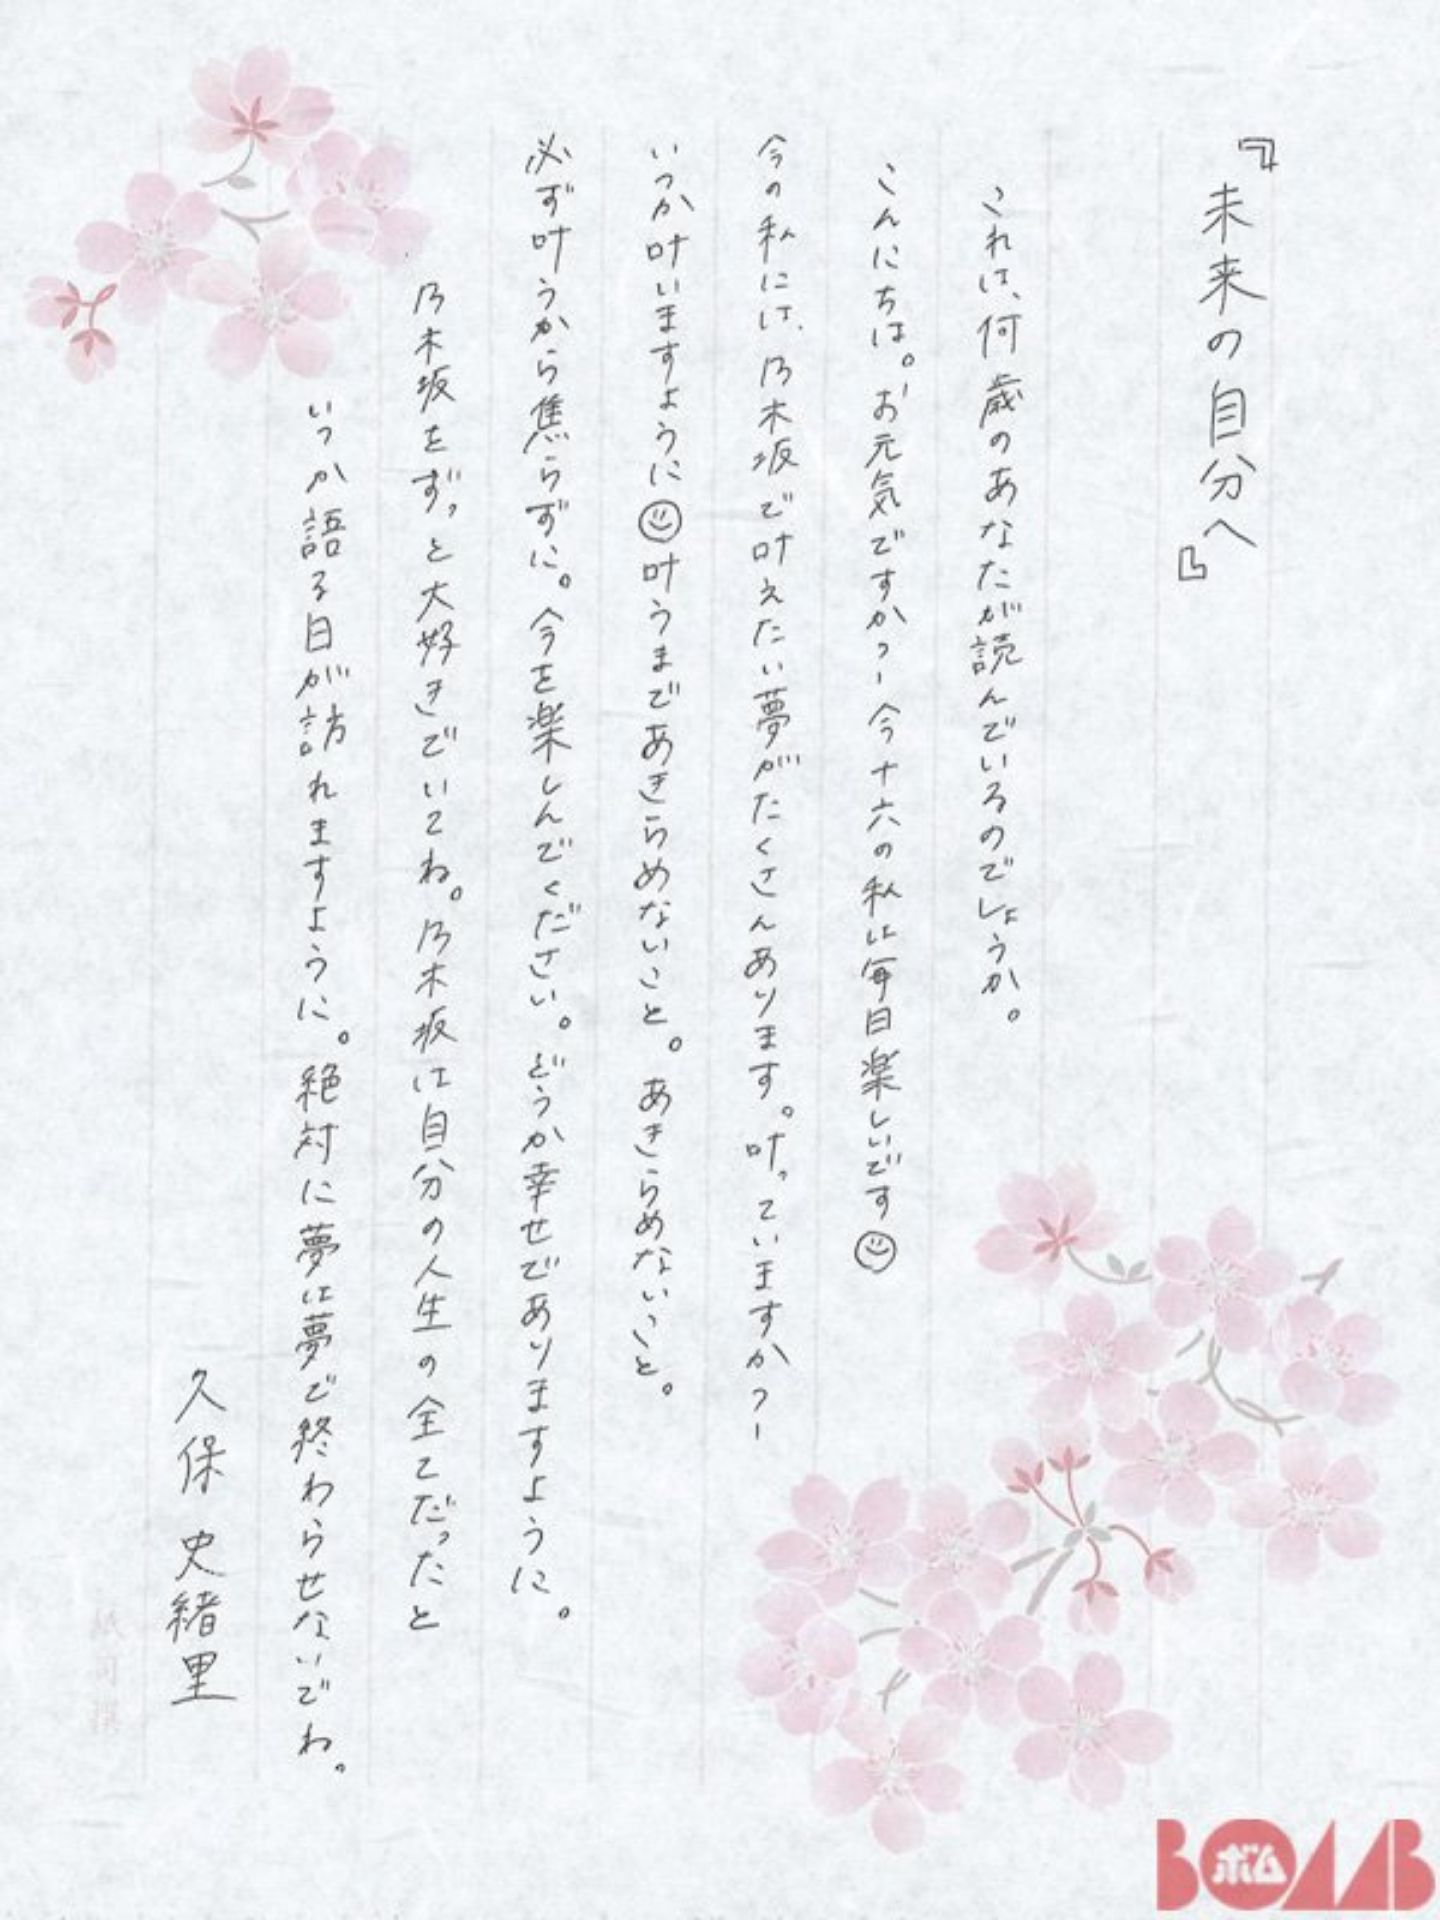 『未来の自分へ』
これは、何歳のあなたが読んでいるのでしょうか。
こんにちは。お元気ですかっー今十六の私は毎日楽しいです☺
今の私には、乃木坂で叶えたい夢がたくさんあります。叶っていますかっー
いつか叶いますように☺叶うまであきらめないこと。あきらめないこと。
必ず叶うから焦らずに。今を楽しんでください。どうか幸せでありますように。
乃木坂をずっと大好きでいてね。乃木坂は自分の人生の全てだったと
いつか語る日が訪れますように。絶対に夢は夢で終わらせないでね。
久保 史緒里
BOMB
ボム